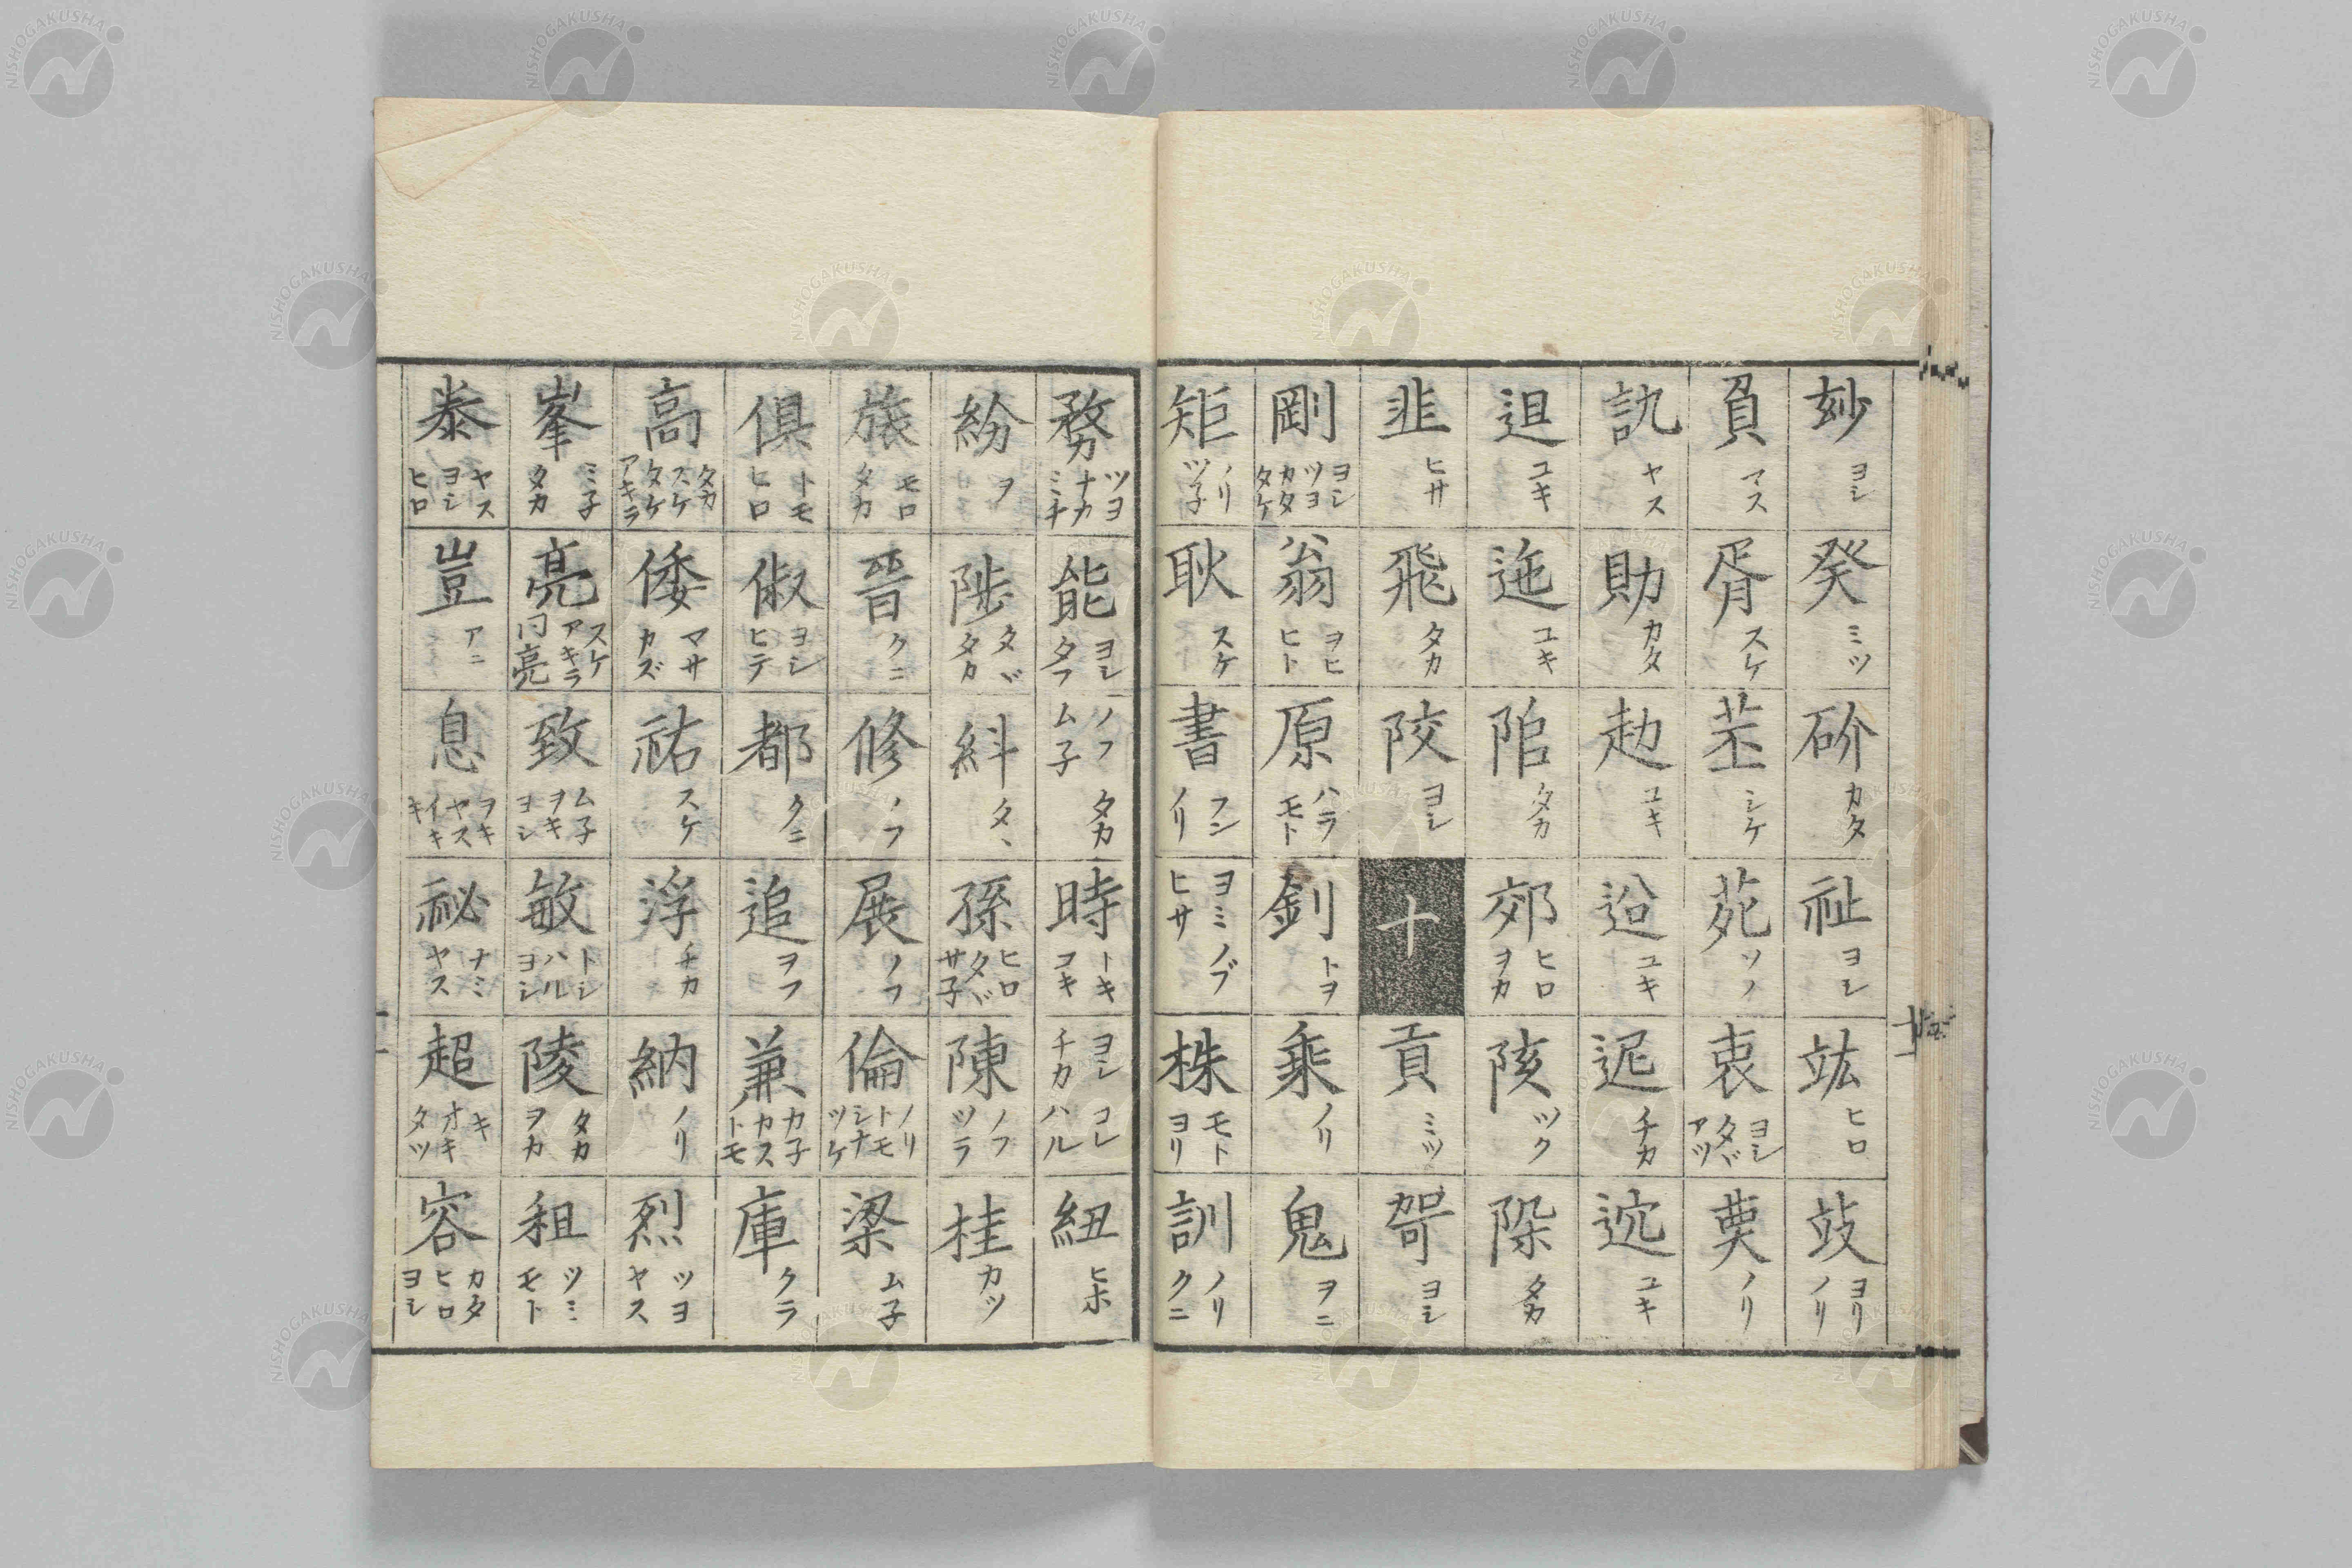 妙 ヨシ
癸 ミツ
砎 カタ
祉 ヨシ
竑 ヒロ
攱 ヨリ ノリ
負 マス
胥 スケ
苤 シケ
苑 ソノ
衷 ヨシ タヾ アツ
耎 ノリ
訅 ヤス
勛 カタ
赲 ユキ
迨 ユキ
迡 チカ
迱 ユキ
迌 ユキ
迤 ユキ
陷 タカ
郊 ヒロ ヲカ
陔 ツク
陎 タカ
韭 ヒサ
飛 タカ
陖 ヨシ
十
貢 ミツ
哿 ヨシ
剛 ヨシ ツヨ カタ タケ
翁 ヲヒ ヒト
原 ハラ モト
釗 トヲ
乘 ノリ
鬼 ヲニ
矩 ノリ ツ子
耿 スケ
書 フン ノリ ヨミ ノブ ヒサ
株 モト ヨリ
訓 ノリ クニ
務 ツヨ ナカ ミチ
能 ヨシ タフ ノフ ム子 タカ
時 トキ コキ ヨシ チカ コレ ハル
紐 ヒホ
紛 ヲ
陟 タヾ タカ
紏 タヽ
孫 ヒロ タヾ サ子
陳 ノフ ツラ
桂 カツ
旅 モロ タカ
晉 クニ
修 ノフ
展 ノフ
倫 ノリ トモ シナ ツケ
梁 ム子
倶 トモ ヒロ
俶 ヨシ ヒテ
都 クニ
追 ヲフ
兼 カ子 カス トモ
庫 クラ
高 タカ スケ タケ アキラ
倭 マサ カズ
祐 スケ
浮 チカ
納 ノリ
烈 ツヨ ヤス
峯 ミ子 タカ
亮 スケ アキラ 同亮
致 ム子 ヲキ ヨシ
敏 トシ ハル ヨシ
陵 タカ ヲカ
租 ツミ モト
泰 ヤス ヨシ ヒロ
豈 アニ
息 ヲキ ヤス イキ キ
祕 ナミ ヤス
超 キ オキ タツ
容 カタ ヒロ ヨシ